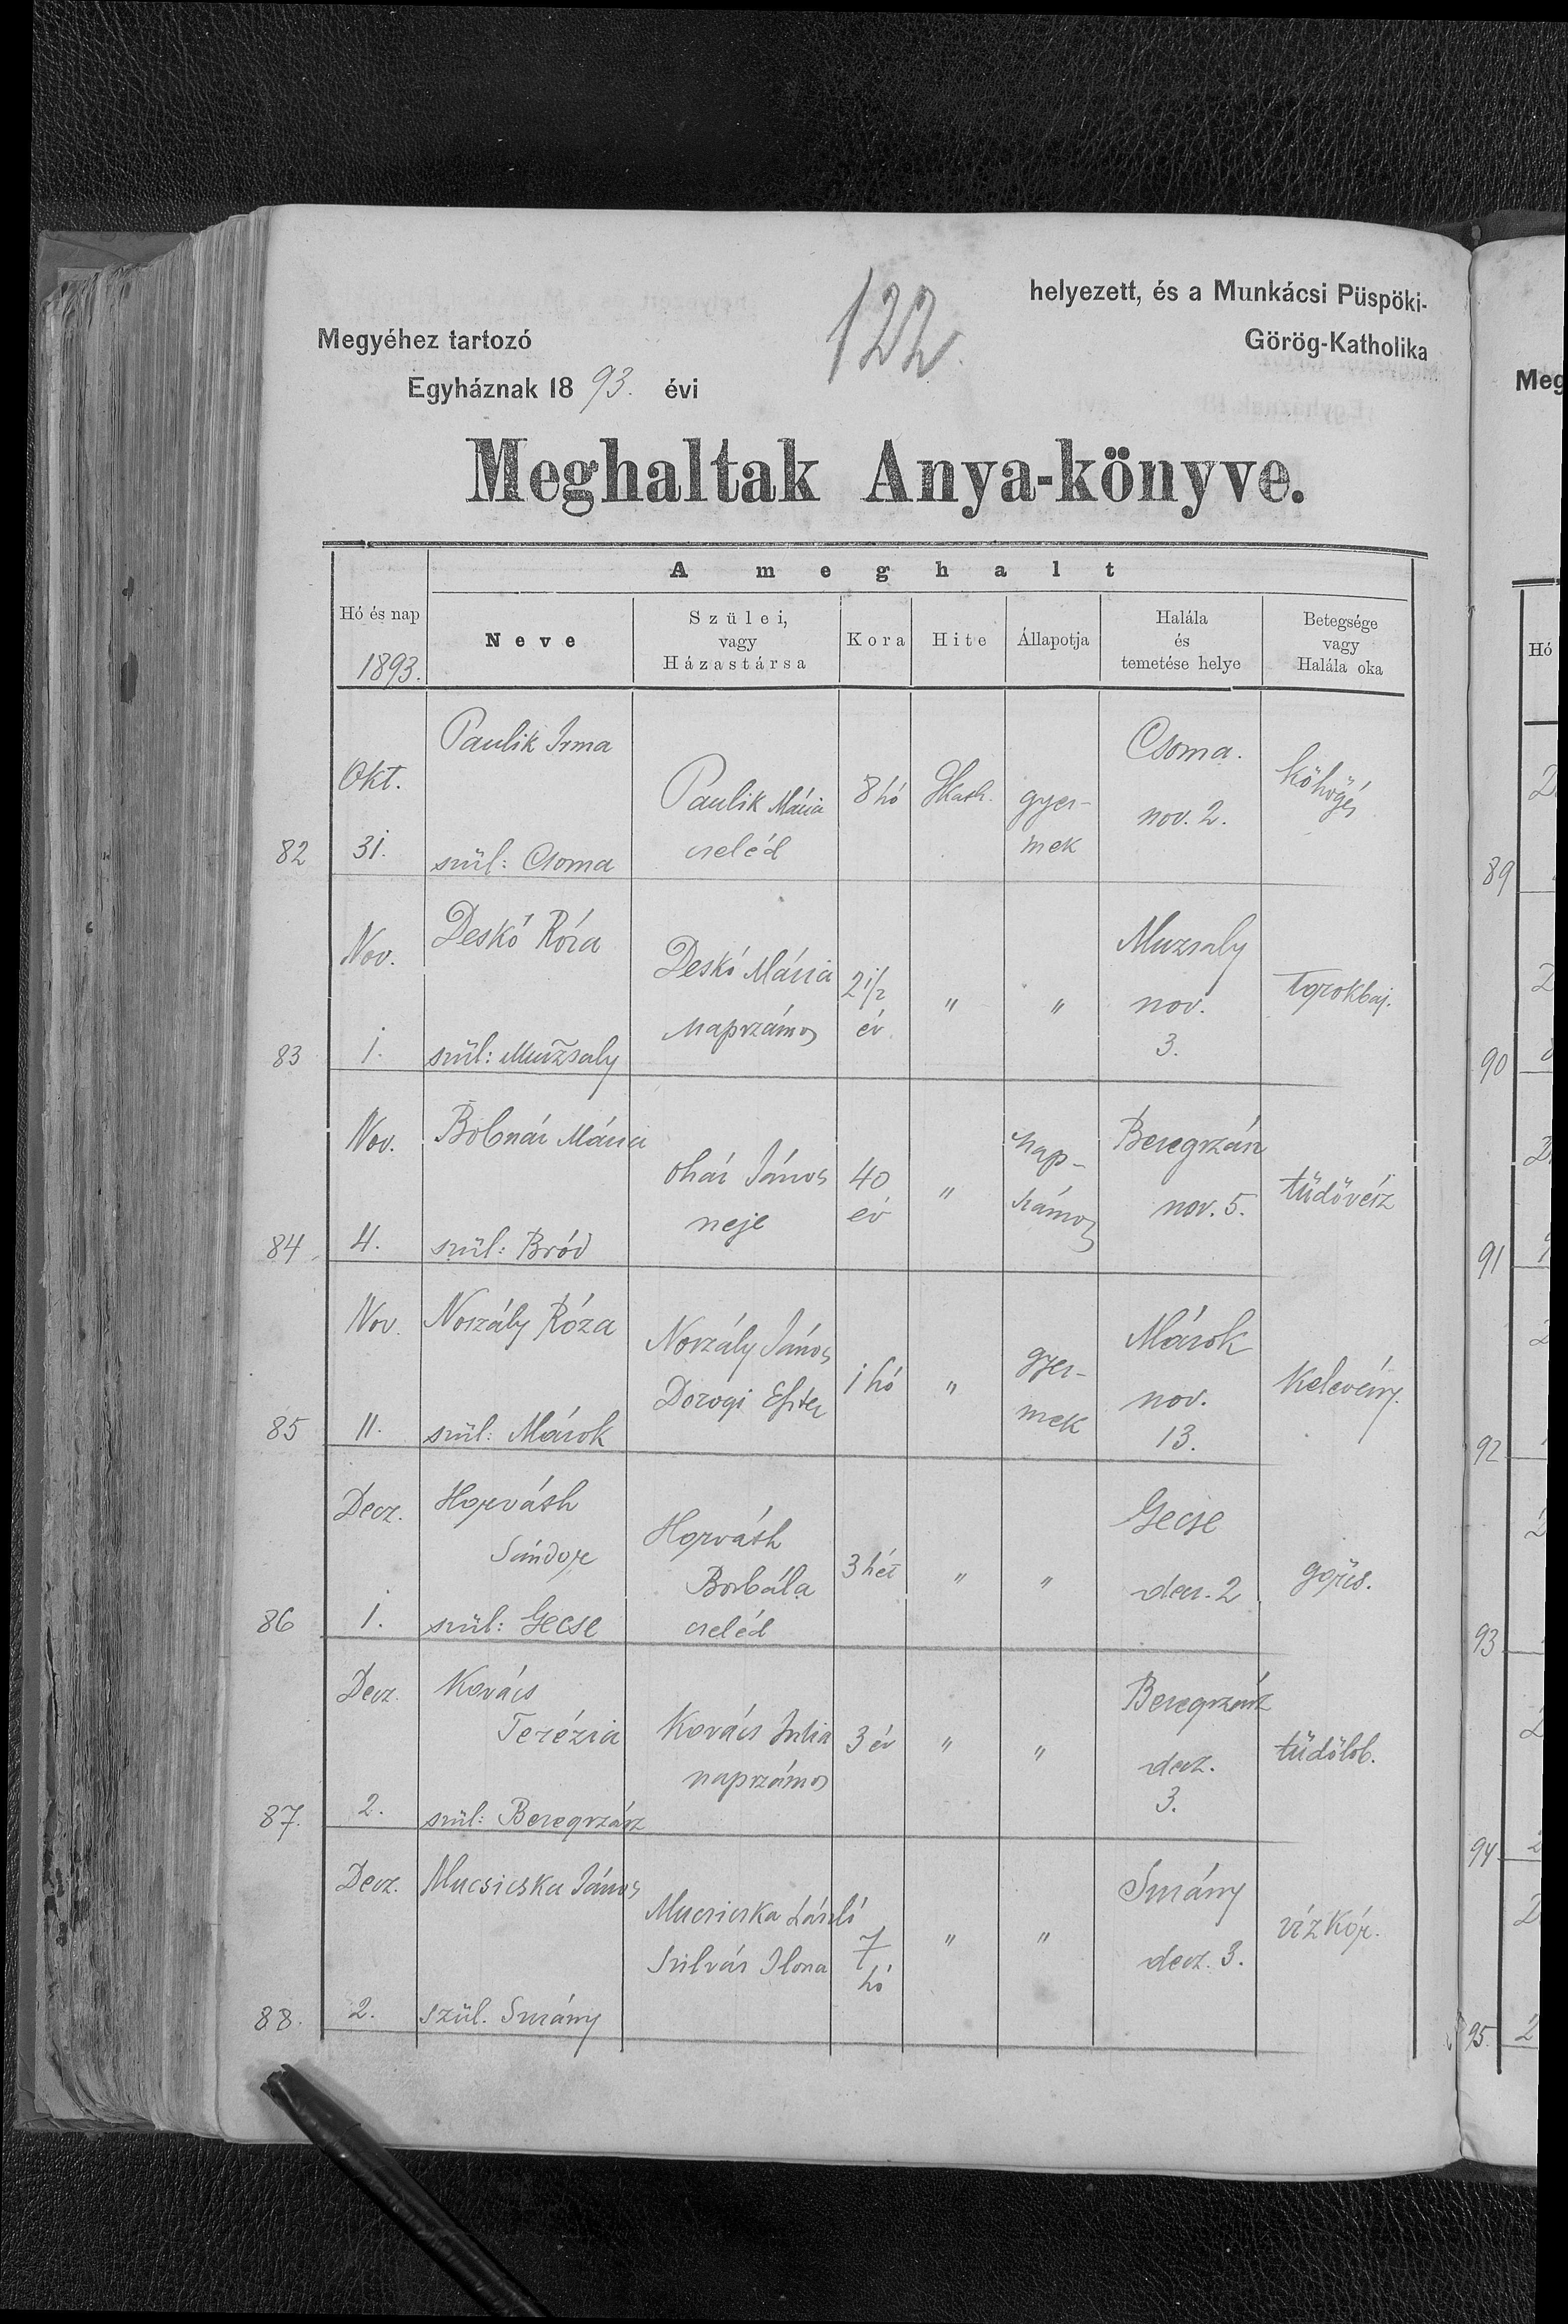 helyezett, és a Munkácsi Püspöki-
122.
Megyéhez tartozó
Görög-Katholika
Egyháznak 1893. évi
Meghaltak Anya-könyve.
A meghalt
Hó és nap
1893.
Neve
Szülei,
vagy
Házastársa
Kora
Hite
Állapotja
Halála
és
temetése helye
Betegsége
vagy
Halála oka
82
Okt.
31.
Paulik Irma
szül: Csoma
Paulik Mária
cseléd
8 hó
Gkath.
gyer-
mek
Csoma.
nov. 2.
köhögés
83
Nov.
1.
Deskó Róza
szül: Muzsaly
Deskó Mária
napszámos
2 1/2
év
"
"
Muzsaly
nov.
3.
Torokbaj.
84
Nov.
4.
Bobnár Mária
szül: Bród
Ohár János
neje
40
év
"
nap-
számos
Beregszász
nov. 5.
tüdővész
85
Nov.
11.
Noszály Róza
szül: Márok
Noszály János
Dorogi Eszter
1 hó
"
gyer-
mek
Márok
nov.
13.
Kelevény.
86
Decz.
1.
Horváth
Sándor
szül: Gecse
Horváth
Borbála
cseléd
3 hét
"
"
Gecse
decz. 2
görcs.
87.
Decz.
2.
Kovács
Terézia
szül: Beregszász
Kovács Julia
napszámos
3 év
"
"
Beregszász
decz.
3.
tüdőlob.
88.
Decz.
2.
Mucsicska János
szül. Surány
Mucsicska László
Szilvás Ilona
7
hó
"
"
Surány
decz. 3.
vízkór.
Meg
Hó
89
90
91
92
93
94
95.